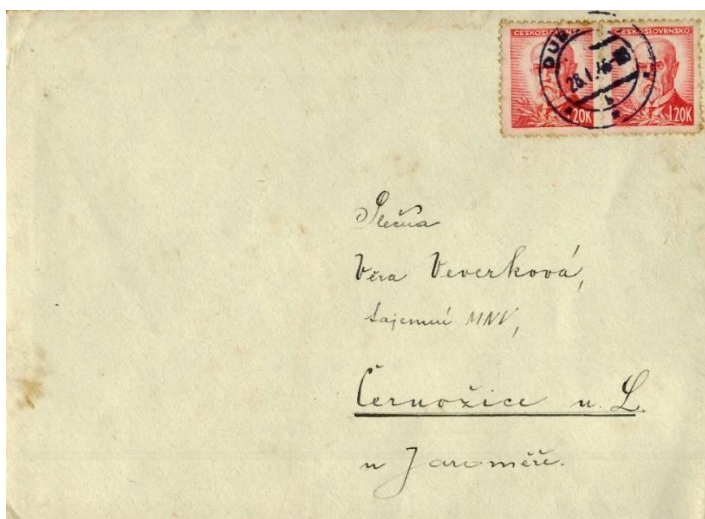 ČESKOSLOVENSKO ČESKOSLOVENSKO
DUB
28.I.46
1.20K 1.20K
Slečna
Věra Veverková,
tajemní MNV,
Černožice n. L.
u Jaroměře.